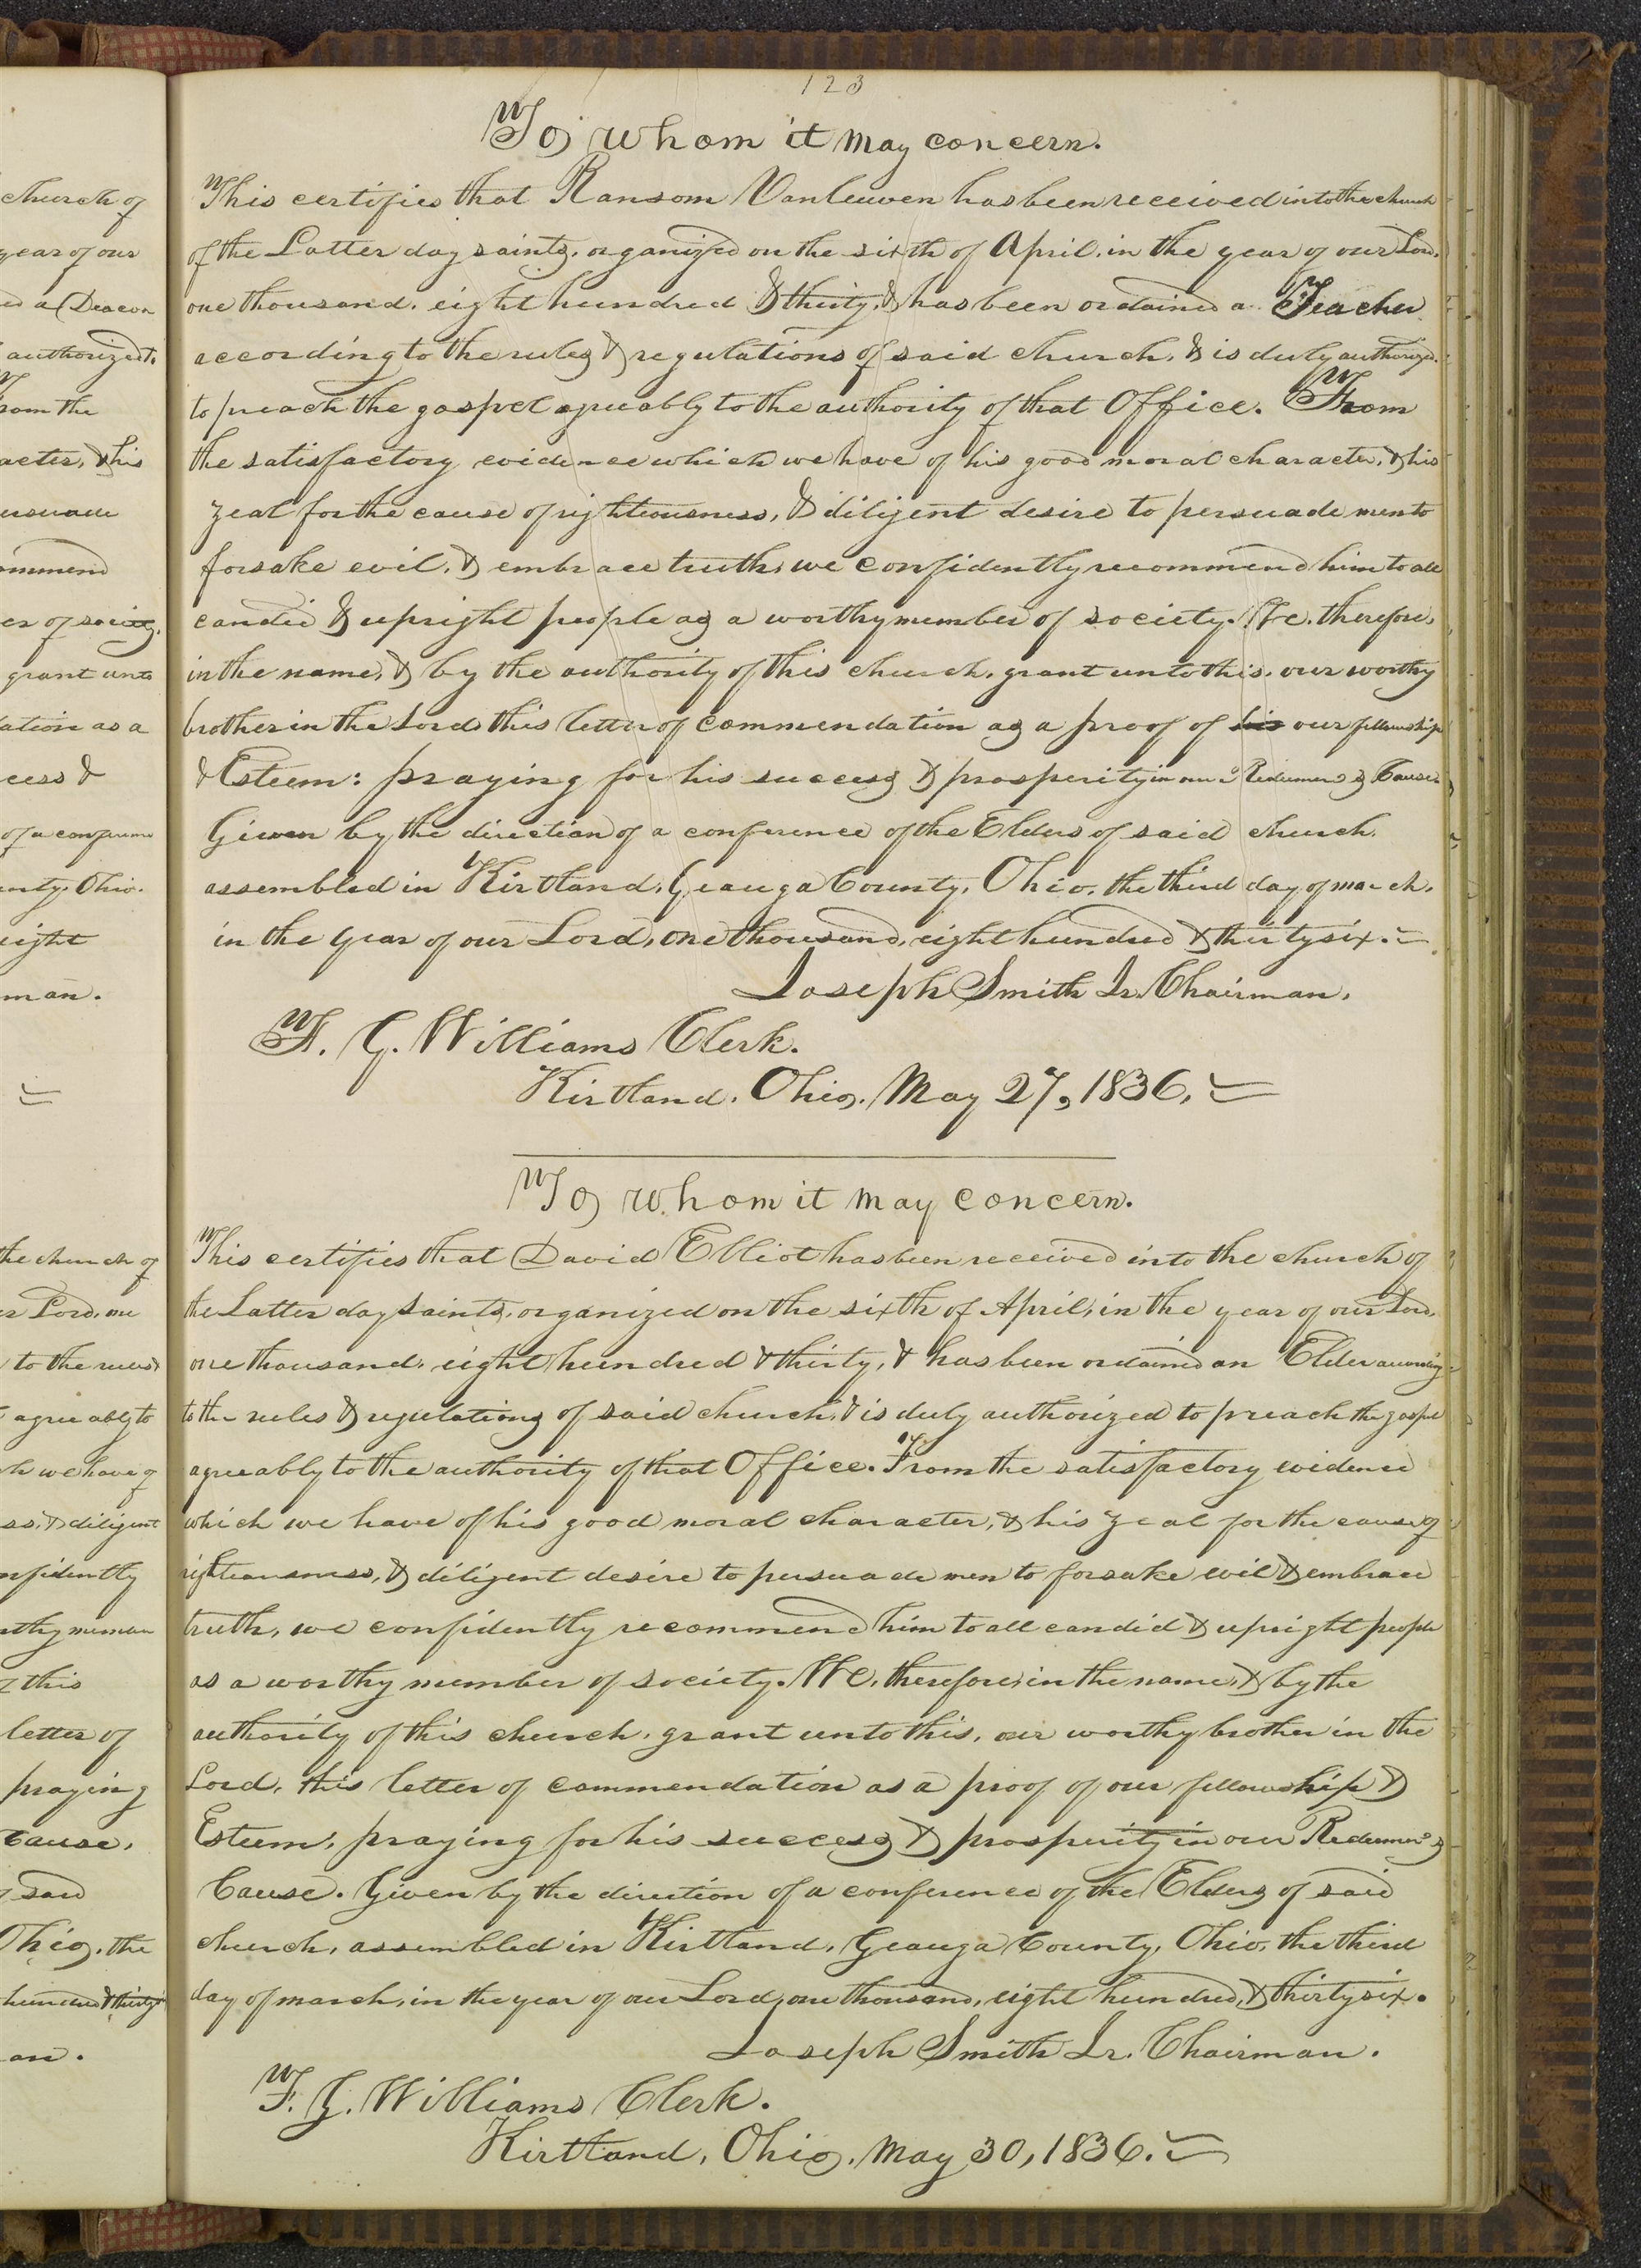 123
To whom it may concern.
This certifies that Ransom Vanleuven has been received into the church
of the Latter day saints, organized on the sixth of April, in the year of our Lord,
one thousand, eight hundred & thirty, & has been ordained a Teacher
according to the rules & regulations of said church, & is duly authorized
to preach the gospel agreeably to the authority of that Office. From
the satisfactory evidence which we have of his good moral character, & his
zeal for the cause of righteousness, & diligent desire to persuade men to
forsake evil, & embrace truth, we confidently recommend him to all
candid & upright people as a worthy member of society. We, therefore,
in the name, & by the authority of this church, grant unto this, our worthy
brother in the Lord, this letter of commendation as a proof of his our fellowship
& Esteem: praying for his success & prosperity in our Redeemer's Cause.
Given by the direction of a conference of the Elders of said church,
assembled in Kirtland, Geauga County, Ohio, the third day of march,
in the year of our Lord, one thousand, eight hundred & thirty six.
Joseph Smith Jr. Chairman.
F. G. Williams Clerk.
Kirtland, Ohio, May 27, 1836.
To whom it may concern.
This certifies that David Elliot has been received into the church of
the Latter day Saints, organized on the sixth of April, in the year of our Lord,
one thousand, eight hundred & thirty, & has been ordained an Elder according
to the rules & regulations of said church, & is duly authorized to preach the gospel
agreeably to the authority of that Office. From the satisfactory evidence
which we have of his good moral character, & his zeal for the cause of
righteousness, & diligent desire to persuade men to forsake evil & embrace
truth, we confidently recommend him to all candid & upright people
as a worthy member of society. We, therefore, in the name, & by the
authority of this church, grant unto this, our worthy brother in the
Lord, this letter of commendation as a proof of our fellowship &
Esteem, praying for his success & prosperity in our Redeemer's
Cause. Given by the direction of a conference of the Elders of said
church, assembled in Kirtland, Geauga County, Ohio, the third
day of march, in the year of our Lord, one thousand, eight hundred, & thirty six.
Joseph Smith Jr. Chairman.
F. G. Williams Clerk.
Kirtland, Ohio, May 30, 1836.